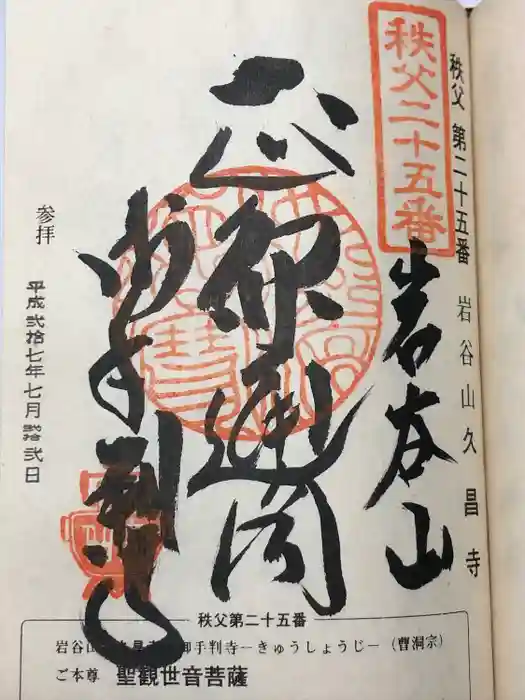 秩父二十五番
秩父 第二十五番 岩谷山久昌寺
岩谷山
通
御手判寺
参拝
平成弐拾七年七月弐拾弐日
秩父第二十五番
岩谷山 久昌寺 御手判寺―きゅうしょうじ―(曹洞宗)
ご本尊 聖観世音菩薩